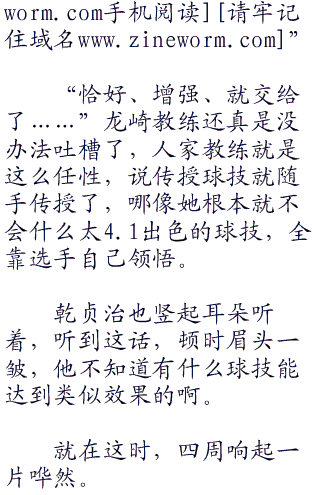 worm.com手机阅读][请牢记
住域名www.zineworm.com]”
“恰好、增强、就交给
了……”龙崎教练还真是没
办法吐槽了，人家教练就是
这么任性，说传授球技就随
手传授了，哪像她根本就不
会什么太4.1出色的球技，全
靠选手自己领悟。
乾贞治也竖起耳朵听
着，听到这话，顿时眉头一
皱，他不知道有什么球技能
达到类似效果的啊。
就在这时，四周响起一
片哗然。